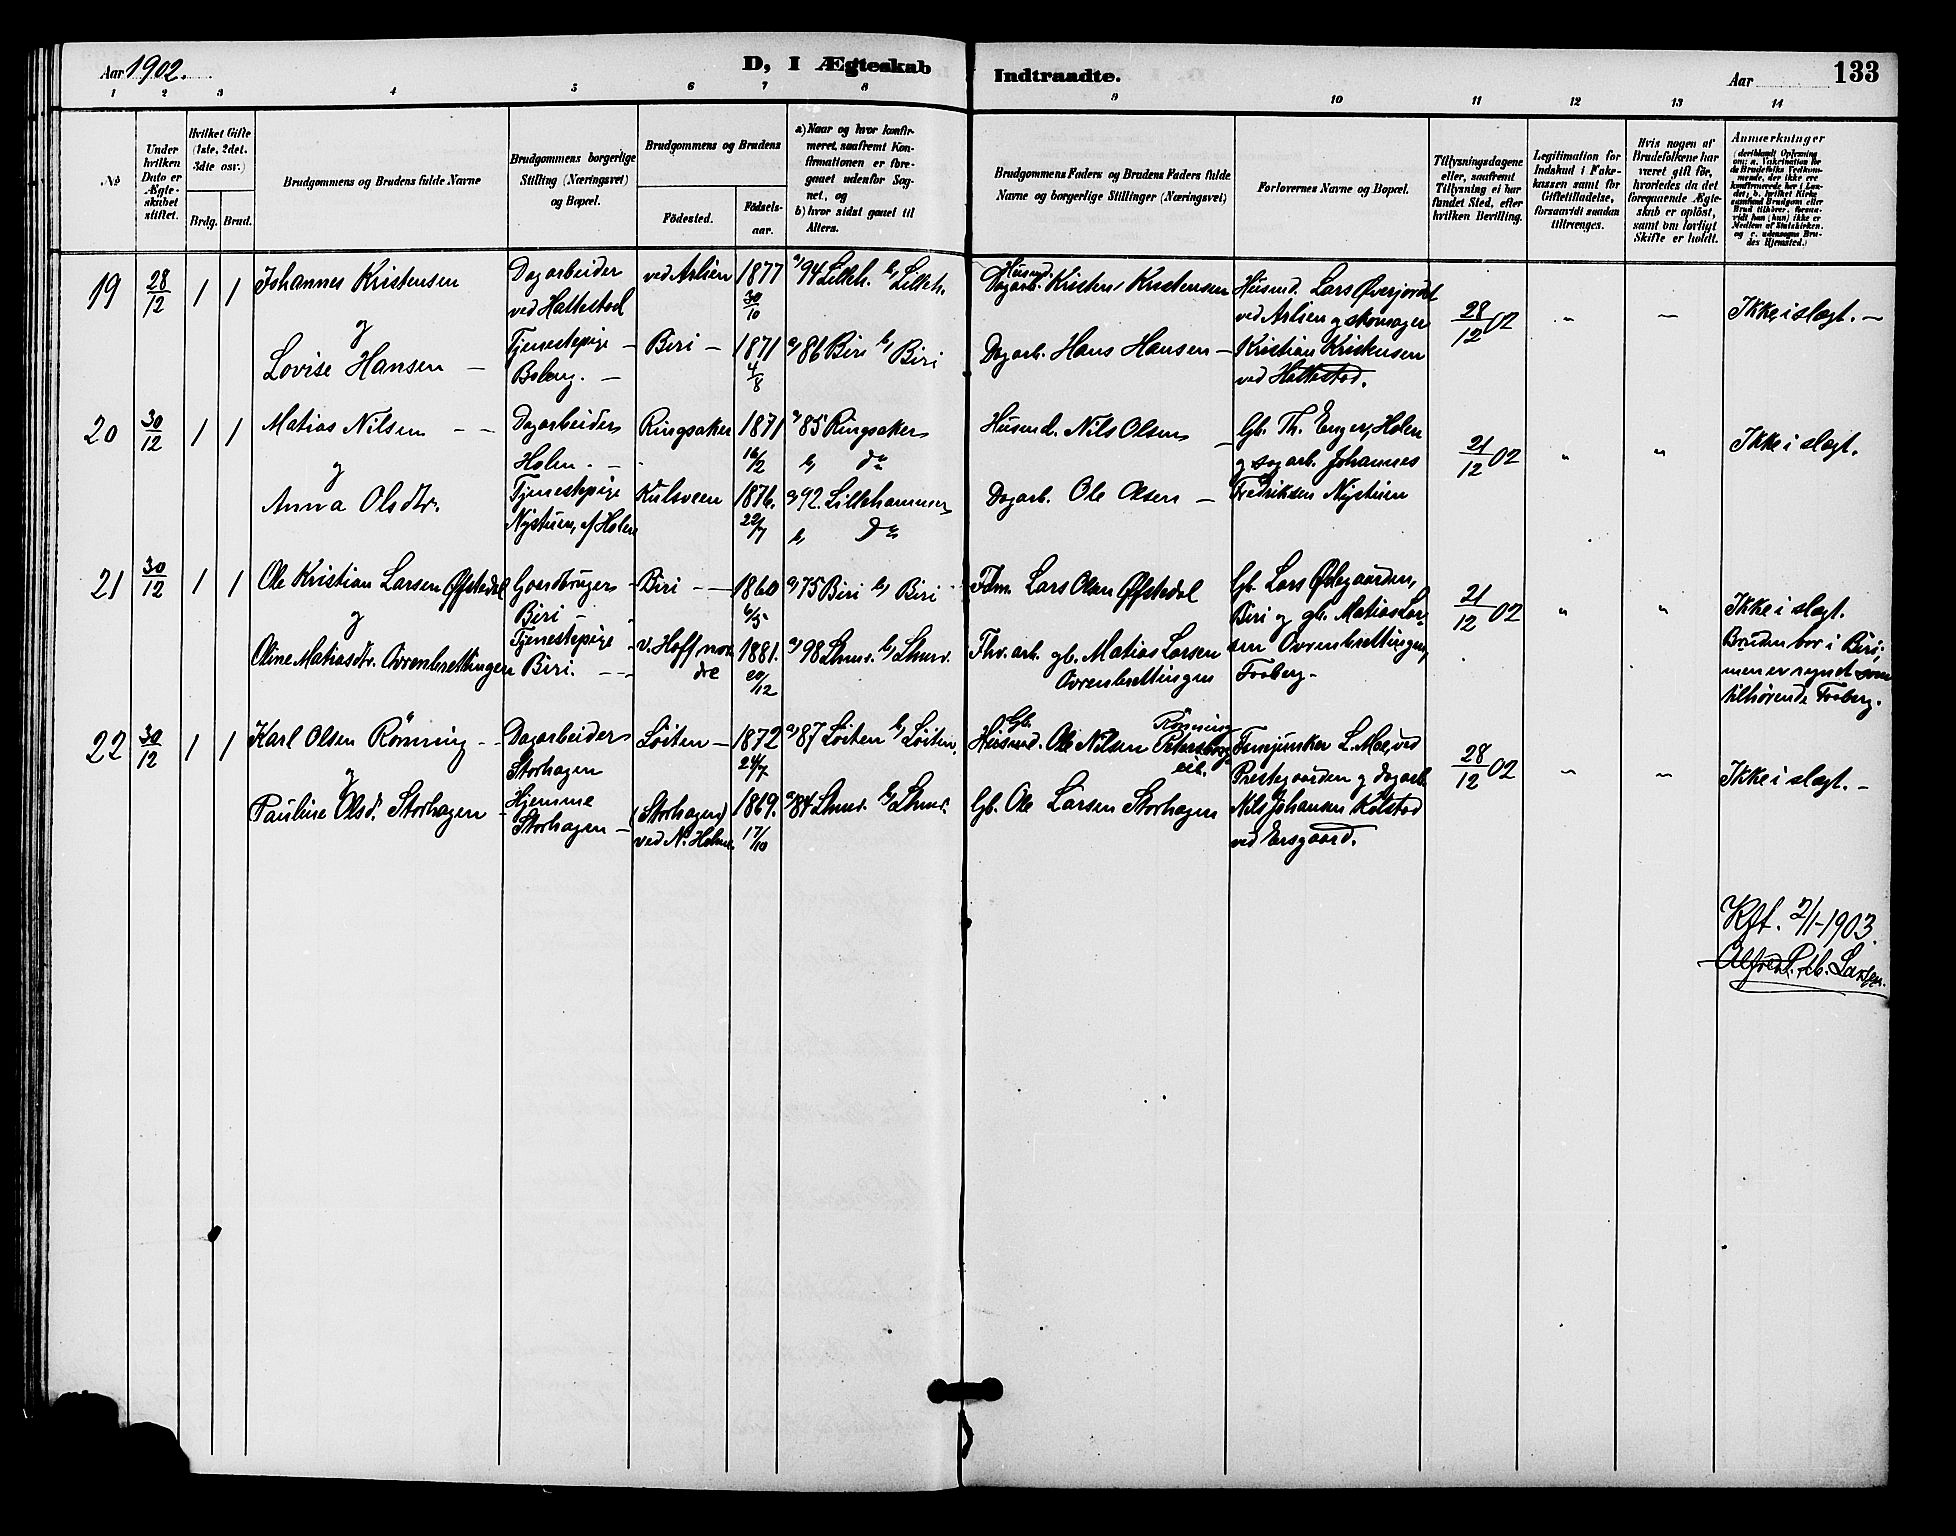 Aar 1902.
D, I Ægteskab Indtraadte.
Aar
133
1 2 3 4 5 6 7 8 9 10 11 12 13 14
No
Under hvilken Dato er Ægteskabet stiftet.
Hvilket Gifte (1ste, 2det, 3die osv.)
Brdg. Brud.
Brudgommens og Brudens fulde Navne
Brudgommens borgerlige Stilling (Næringsvei) og Bopæl.
Brudgommens og Brudens
Födested.
Födselsaar.
a) Naar og hvor konfirmeret, saafremt Konfirmationen er foregaaet udenfor Sognet, og
b) hvor sidst gaaet til Alters.
Brudgommens Faders og Brudens Faders fulde Navne og borgerlige Stillinger (Næringsvei)
Forlovernes Navne og Bopæl.
Tillysningsdagene eller, saafremt Tillysning ei har fundet Sted, efter hvilken Bevilling.
Legitimation for Indskud i Enkekassen samt for Giftetilladelse, forsaavidt saadan tiltrænges.
Hvis nogen af Brudefolkene har været gift för, hvorledes da det foregaaende Ægteskab er oplöst, samt om lovligt Skifte er holdt.
Anmerkninger
19 28/12 1 1 Johannes Kristensen
og
Lovise Hansen –
Dagarbeider
ved Hattestad
Tjenestepige –
Boleng. –
ved Aslien
Biri –
1877
30/10
1871
4/8
a) 94 Lilleh. b) Lilleh.
a) 86 Biri b) Biri
Husmd.
Dagarb. Kristen Kristensen
Dagarb. Hans Hansen –
Husmd. Lars Øverjordet
ved Aslien og skomager
Kristian Kristensen
ved Hattestad.
28/12 02
"
–
Ikke i slægt. –
20 30/12 1 1 Matias Nilsen – –
og
Anna Olsdtr.
Dagarbeider
Holen. –
Tjenestepige
Nystuen, af Holen
Ringsaker
Kulsveen
1871
16/2
1876.
22/7
a) 85 Ringsaker
b) do
a) 92. Lillehammer
b) do
Husmd. Nils Olsen –
Dagarb. Ole Olsen –
Gb. Th. Enger, Holen
og dagarb. Johannes
Fredriksen Nystuen
21/12 02
"
"
Ikke i slægt.
21 30/12 1 1 Ole Kristian Larsen Øfstedal
og
Oline Matiasdtr. Ovrenbrettingen
Gaardbruger
Biri –
Tjenestepige
Biri. – –
Biri – –
v. Hoff nor
dre
1860
6/5
1881.
20/12
a) 75 Biri b) Biri
a) 98 Lhmr. b) Lhmr.
Fdm. Lars Olsen Øfstedal
Fhv. arb. gb. Matias Larsen
Ovrenbrettingen
Gb. Lars Ødegaarden,
Biri og gb. Matias Lar
sen Ovrenbrettingen,
Faaberg –
21/12 02
"
"
Ikke i slægt.
Bruden bor i Biri,
men er regnet som
tilhørende Faaberg.
22 30/12 1 1 Karl Olsen Rönning – –
og
Pauline Olsd. Storhagen –
Dagarbeider
Storhagen
Hjemme
Storhagen –
Löiten –
(Storhagen)
ved N. Holme.
1872
24/7
1869.
17/10
a) 87 Löiten b) Löiten.
a) 84 Lhmr. b) Lhmr.
Gb.
Husmd. Ole Nilsen Rönning
Gb. Ole Larsen Storhagen
Fanejunker L. Moe, ved
Prestegaarden og dagarb.
Nils Johansen Kolstad
ved Ersgaard.
28/12 02
"
–
Ikke i slægt. –
Kft. 2/1 – 1903.
Larsen.